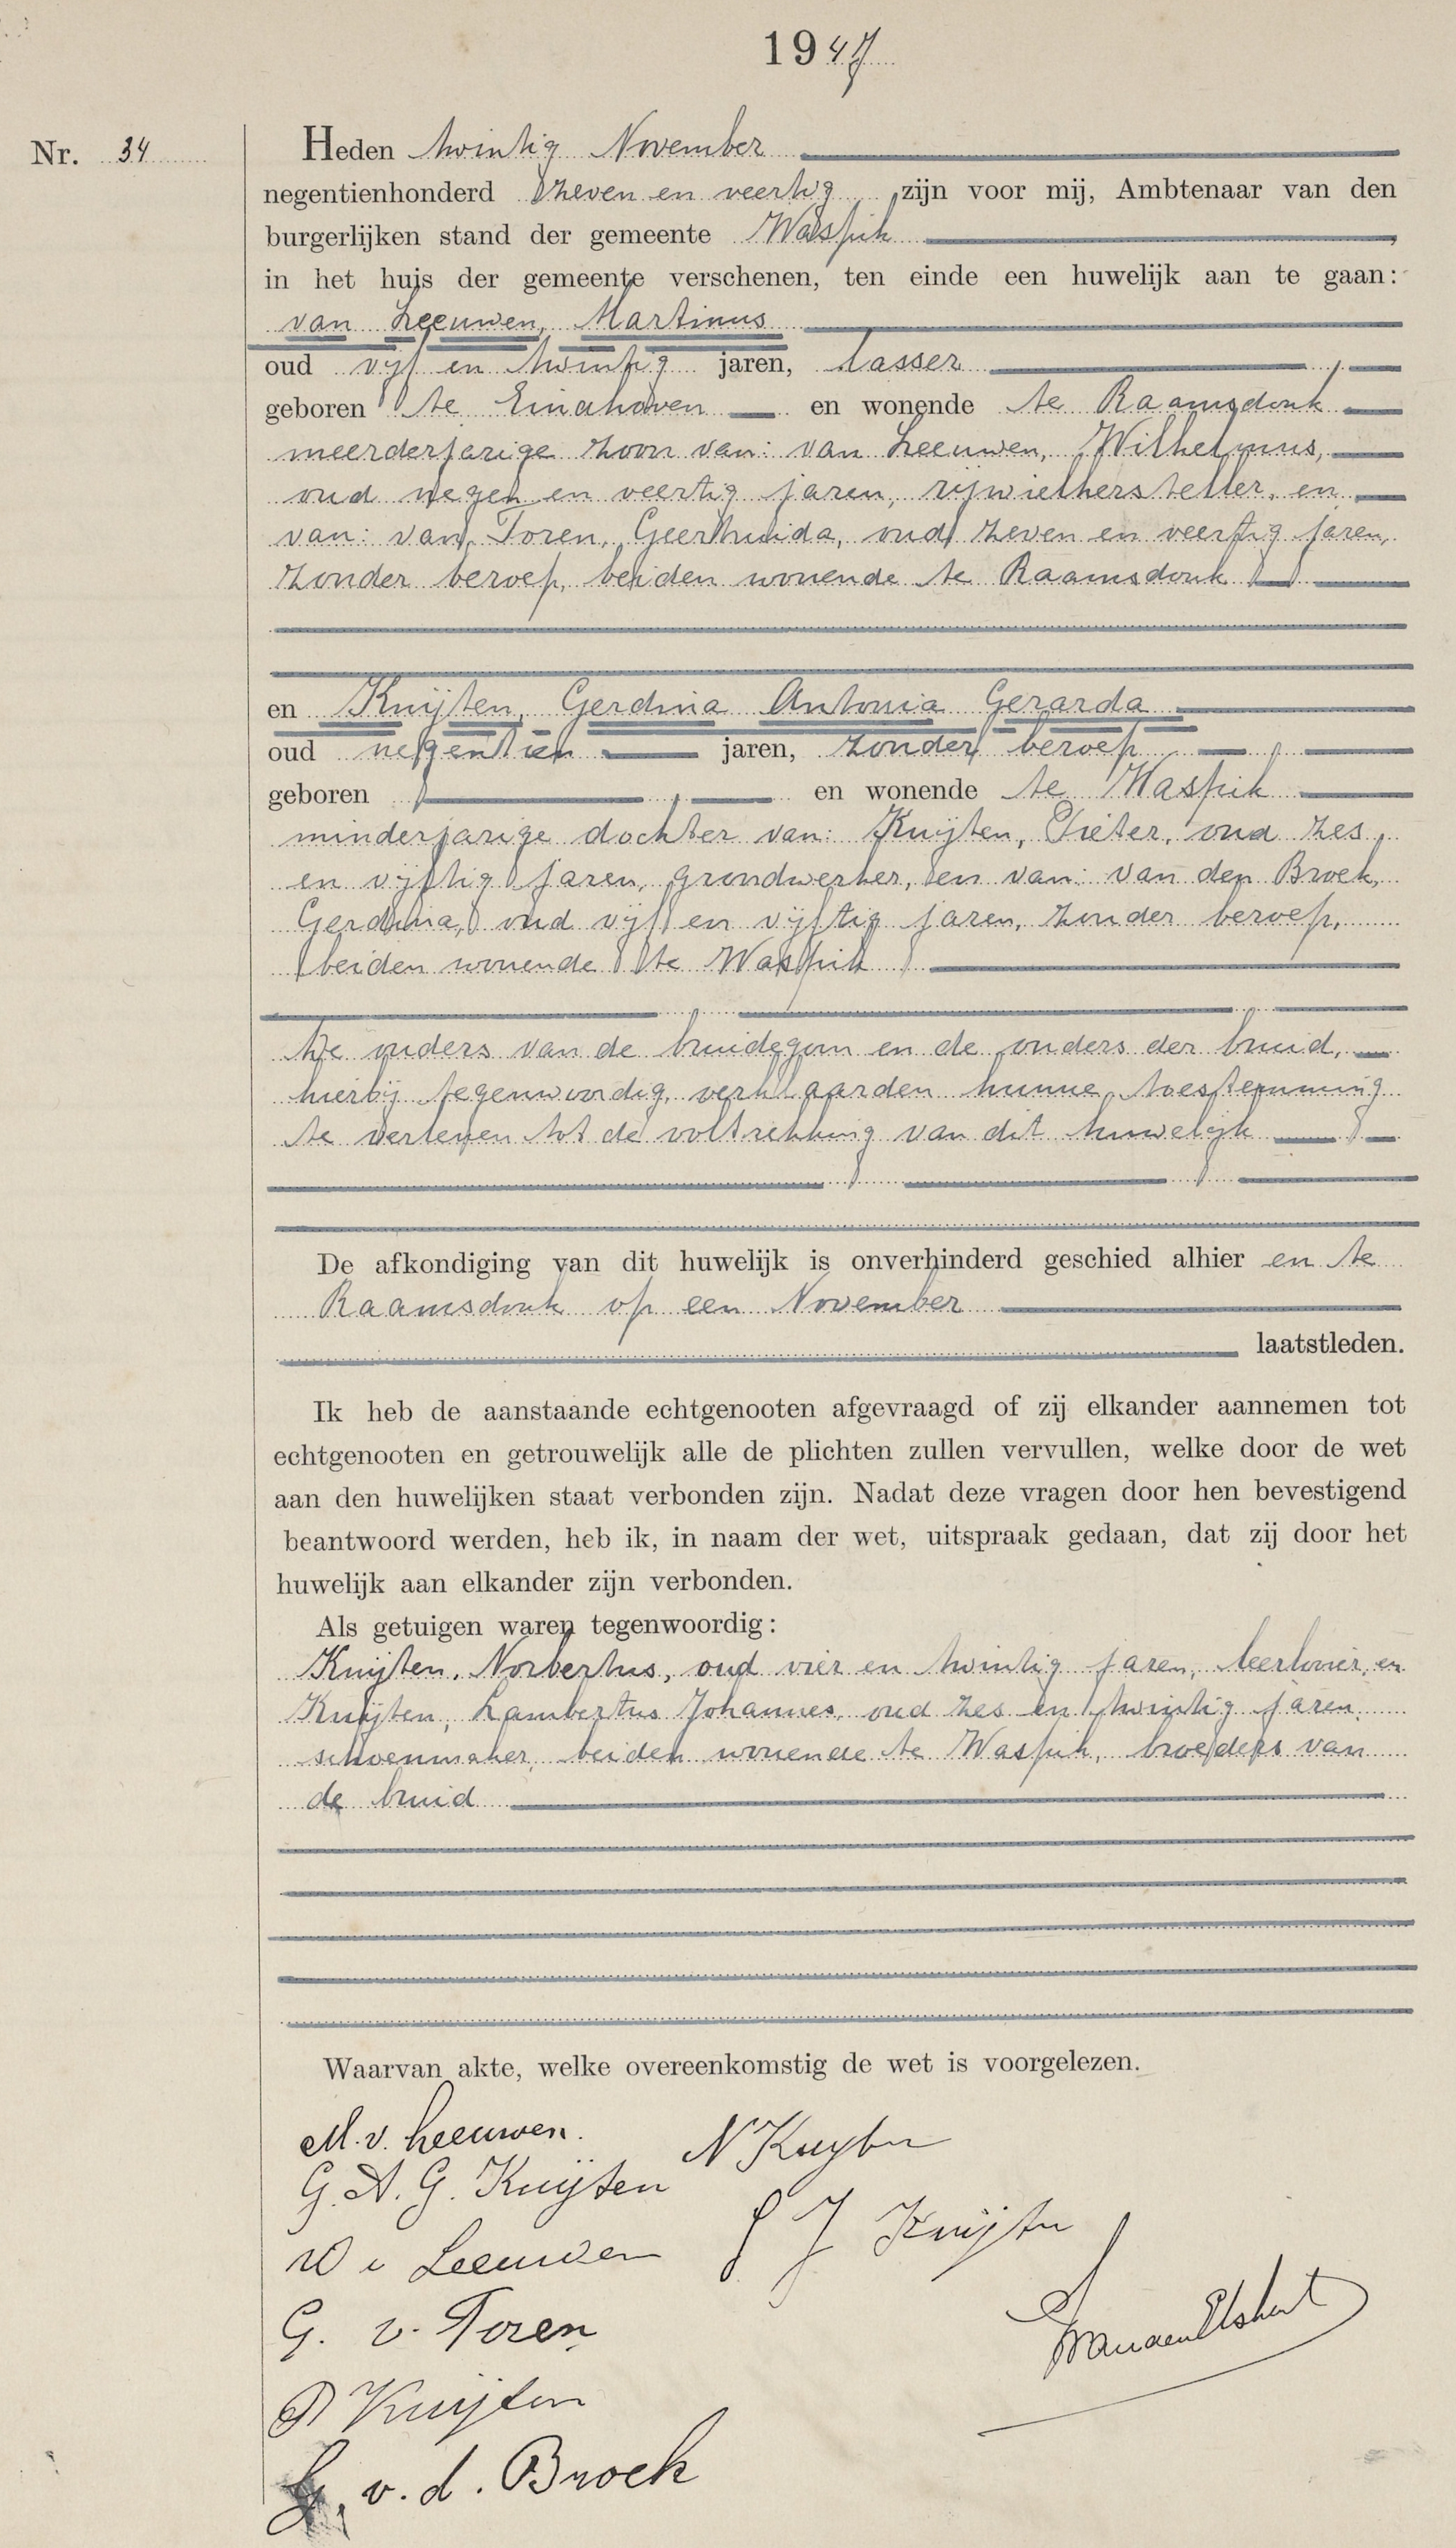 1947
Nr. 34
Heden twintig November
negentienhonderd zeven en veertig zijn voor mij, Ambtenaar van den
burgerlijken stand der gemeente Waspik
in het huis der gemeente verschenen, ten einde een huwelijk aan te gaan:
van Leeuwen, Martinus
oud vijf en twintig jaren, lasser,
geboren te Eindhoven en wonende te Raamsdonk
meerderjarige zoon van: van Leeuwen, Wilhelmus,
oud negen en veertig jaren, rijwielhersteller, en
van: van Toren, Geertruida, oud zeven en veertig jaren,
zonder beroep, beiden wonende te Raamsdonk
en Kuijten, Gerdina Antonia Gerarda
oud negentien jaren, zonder beroep,
geboren , en wonende te Waspik
minderjarige dochter van: Kuijten, Pieter, oud zes
en vijftig jaren, grondwerker, en van: van den Broek,
Gerdina, oud vijf en vijftig jaren, zonder beroep,
beiden wonende te Waspik
De ouders van de bruidegom en de ouders der bruid,
hierbij tegenwoordig, verklaarden hunne toestemming
te verlenen tot de voltrekking van dit huwelijk
De afkondiging van dit huwelijk is onverhinderd geschied alhier en te
Raamsdonk op een November
laatstleden.
Ik heb de aanstaande echtgenooten afgevraagd of zij elkander aannemen tot
echtgenooten en getrouwelijk alle de plichten zullen vervullen, welke door de wet
aan den huwelijken staat verbonden zijn. Nadat deze vragen door hen bevestigend
beantwoord werden, heb ik, in naam der wet, uitspraak gedaan, dat zij door het
huwelijk aan elkander zijn verbonden.
Als getuigen waren tegenwoordig:
Kuijten, Norbertus, oud vier en twintig jaren, leerlooier, en
Kuijten, Lambertus Johannes, oud zes en twintig jaren,
schoenmaker, beiden wonende te Waspik, broeders van
de bruid
Waarvan akte, welke overeenkomstig de wet is voorgelezen.
M. v. Leeuwen. N Kuyten
G. A. G. Kuijten
W v Leeuwen L J Kuijten
G. v. Toren
P Kuijten
G. v. d. Broek